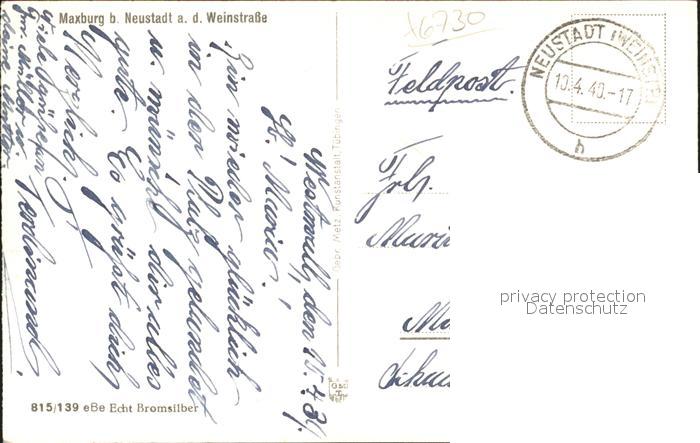 Maxburg b. Neustadt a. d. Weinstraße
16730
Westwall, den 10.4.40.
Lb. Maria!
Bin wieder glücklich
in der Pfalz gelandet
u. wünsche dir alles
gute. Es grüßt dich
Herzlich
Ferdinand.
Viele Grüße
Feldpost.
Frl.
Mari
NEUSTADT (WEINSTR)
10.4.40.-17
h
privacy protection
Datenschutz
Repr. Metz, Kunstanstalt Tübingen
815/139 eBe Echt Bromsilber